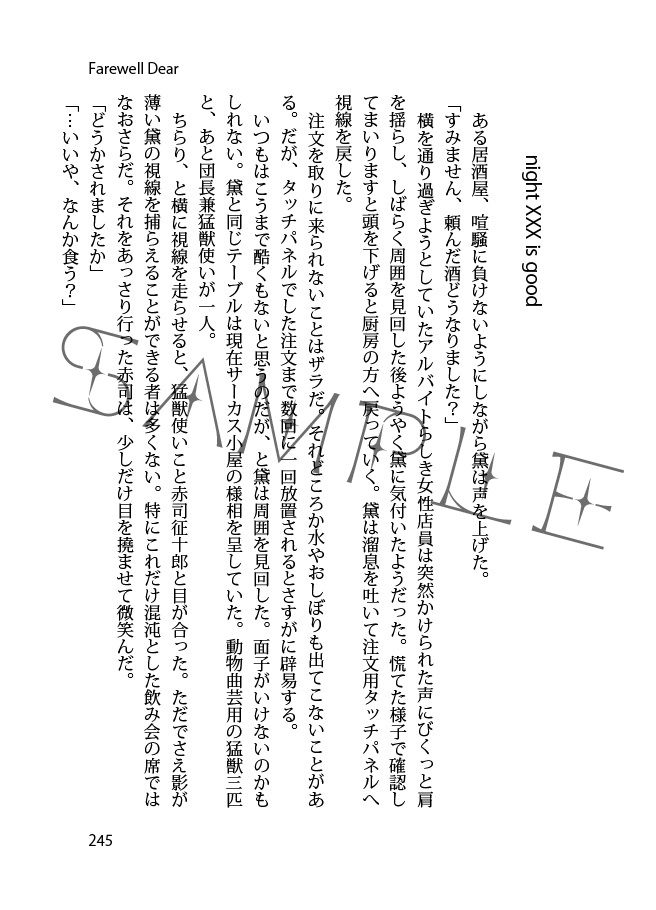 Farewell Dear
night XXX is good
ある居酒屋、喧騒に負けないようにしながら黛は声を上げた。
「すみません、頼んだ酒どうなりました？」
横を通り過ぎようとしていたアルバイトらしき女性店員は突然かけられた声にびくっと肩
を揺らし、しばらく周囲を見回した後ようやく黛に気付いたようだった。慌てた様子で確認し
てまいりますと頭を下げると厨房の方へ戻っていく。黛は溜息を吐いて注文用タッチパネルへ
視線を戻した。
注文を取りに来られないことはザラだ。それどころか水やおしぼりも出てこないことがあ
る。だが、タッチパネルでした注文まで数回に一回放置されるとさすがに辟易する。
いつもはこうまで酷くもないと思うのだが、と黛は周囲を見回した。面子がいけないのかも
しれない。黛と同じテーブルは現在サーカス小屋の様相を呈していた。動物曲芸用の猛獣三匹
と、あと団長兼猛獣使いが一人。
ちらり、と横に視線を走らせると、猛獣使いこと赤司征十郎と目が合った。ただでさえ影が
薄い黛の視線を捕らえることができる者は多くない。特にこれだけ混沌とした飲み会の席では
なおさらだ。それをあっさり行った赤司は、少しだけ目を撓ませて微笑んだ。
「どうかされましたか」
「…いいや、なんか食う？」
SAMPLE
245